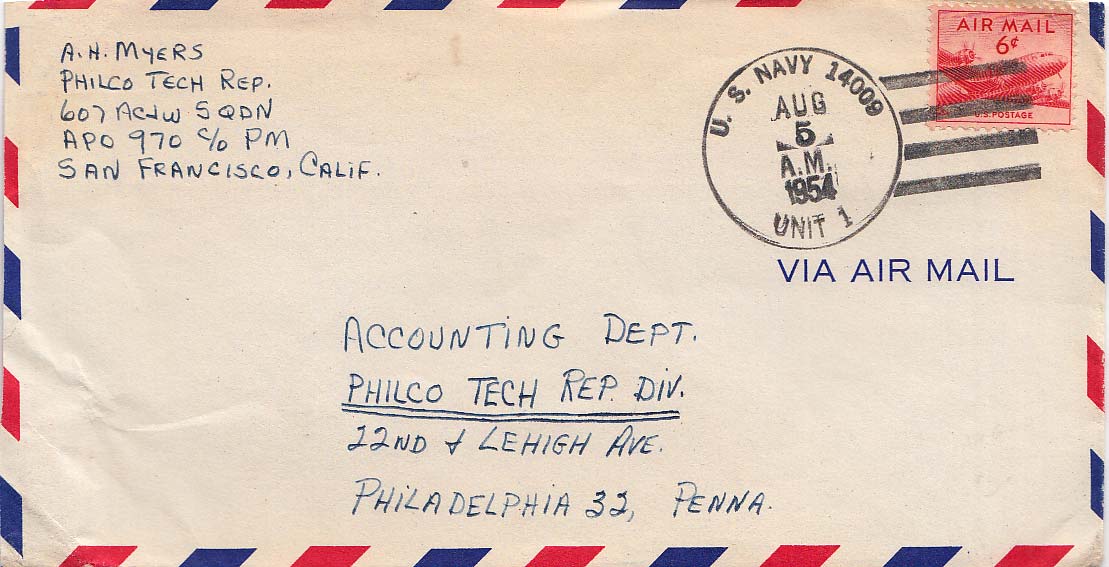 A.H. MYERS
PHILCO TECH REP.
607 AC&W SQDN
APO 970 C/O PM
SAN FRANCISCO, CALIF.
AIR MAIL
6¢
U.S. POSTAGE
U. S. NAVY 14009
AUG
5
A.M.
1954
UNIT 1
VIA AIR MAIL
ACCOUNTING DEPT.
PHILCO TECH REP. DIV.
22ND & LEHIGH AVE.
PHILADELPHIA 32, PENNA.